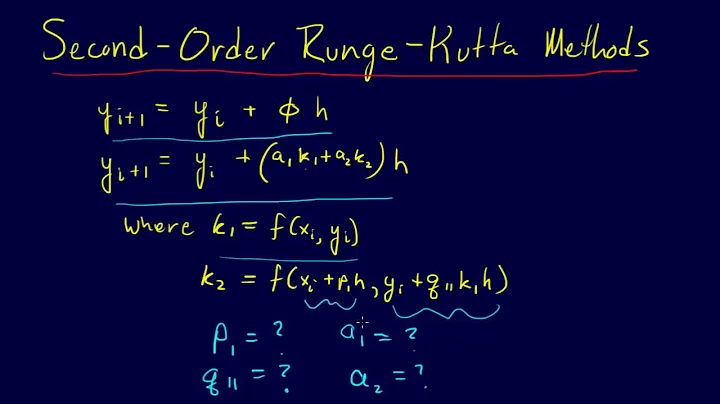 Second-Order Runge-Kutta Methods
yᵢ₊₁ = yᵢ + ϕ h
yᵢ₊₁ = yᵢ + (a₁k₁+a₂k₂)h
where k₁ = f(xᵢ, yᵢ)
k₂ = f(xᵢ+p₁h, yᵢ+q₁₁k₁h)
p₁ = ? a₁ = ?
q₁₁ = ? a₂ = ?